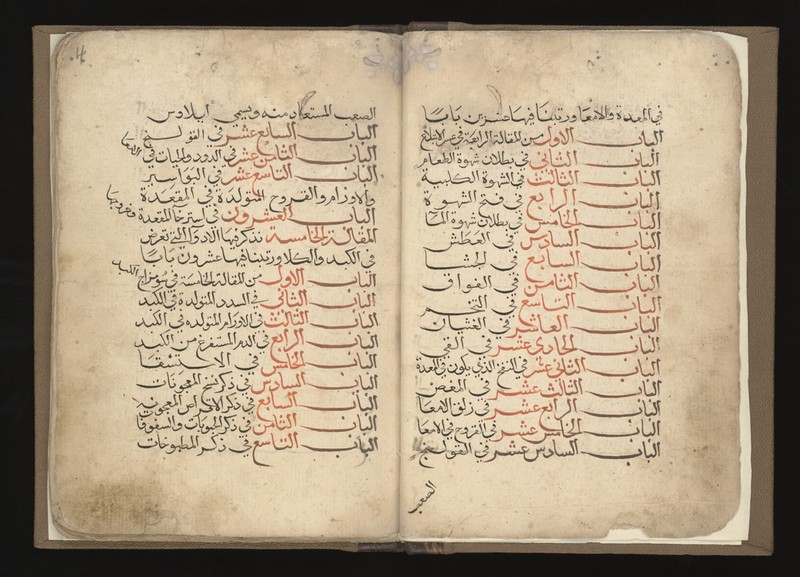 في المعدة والامعا ورتبنا فيها عشرين بابا
الباب الاول من المقالة الرابعة في عسر الابتلاع
الباب الثاني في بطلان شهوة الطعام
الباب الثالث في الشهوة الكلبية
الباب الرابع في فتح الشهوة
الباب الخامس في بطلان شهوة الما
الباب السادس في العطش
الباب السابع في الجشا
الباب الثامن في الفواق
الباب التاسع في التخم
الباب العاشر في الغثيان
الباب الحادي عشر في القي
الباب الثاني عشر في النفخ الذي يكون في المعدة
الباب الثالث عشر في المغص
الباب الرابع عشر في زلق الامعا
الباب الخامس عشر في القروح في الامعا
الباب السادس عشر في القولنج
الصعب
4
الصعب المستعاذ منه ويسمى ايلاوس
الباب السابع عشر في القولنج
الباب الثامن عشر في الدود والحيات في الامعا
الباب التاسع عشر في البواسير
والاورام والقروح المتولدة في المقعدة
الباب العشرون في استرخا المقعدة وخروجها
المقالة الخامسة نذكر فيها الادوا التي تعرض
في الكبد والكلا ورتبنا فيها عشرون بابا
الباب الاول من المقالة الخامسة في سو مزاج الكبد
الباب الثاني في السدد المتولدة في الكبد
الباب الثالث في الاورام المتولده في الكبد
الباب الرابع في الدم المستفرغ من الكبد
الباب الخامس في الاستسقا
الباب السادس في ذكر نسخ المعجونات
الباب السابع في ذكر الاقراص المعجونة
الباب الثامن في ذكر الحبوبات والسفوفات
الباب التاسع في ذكر المطبوخات